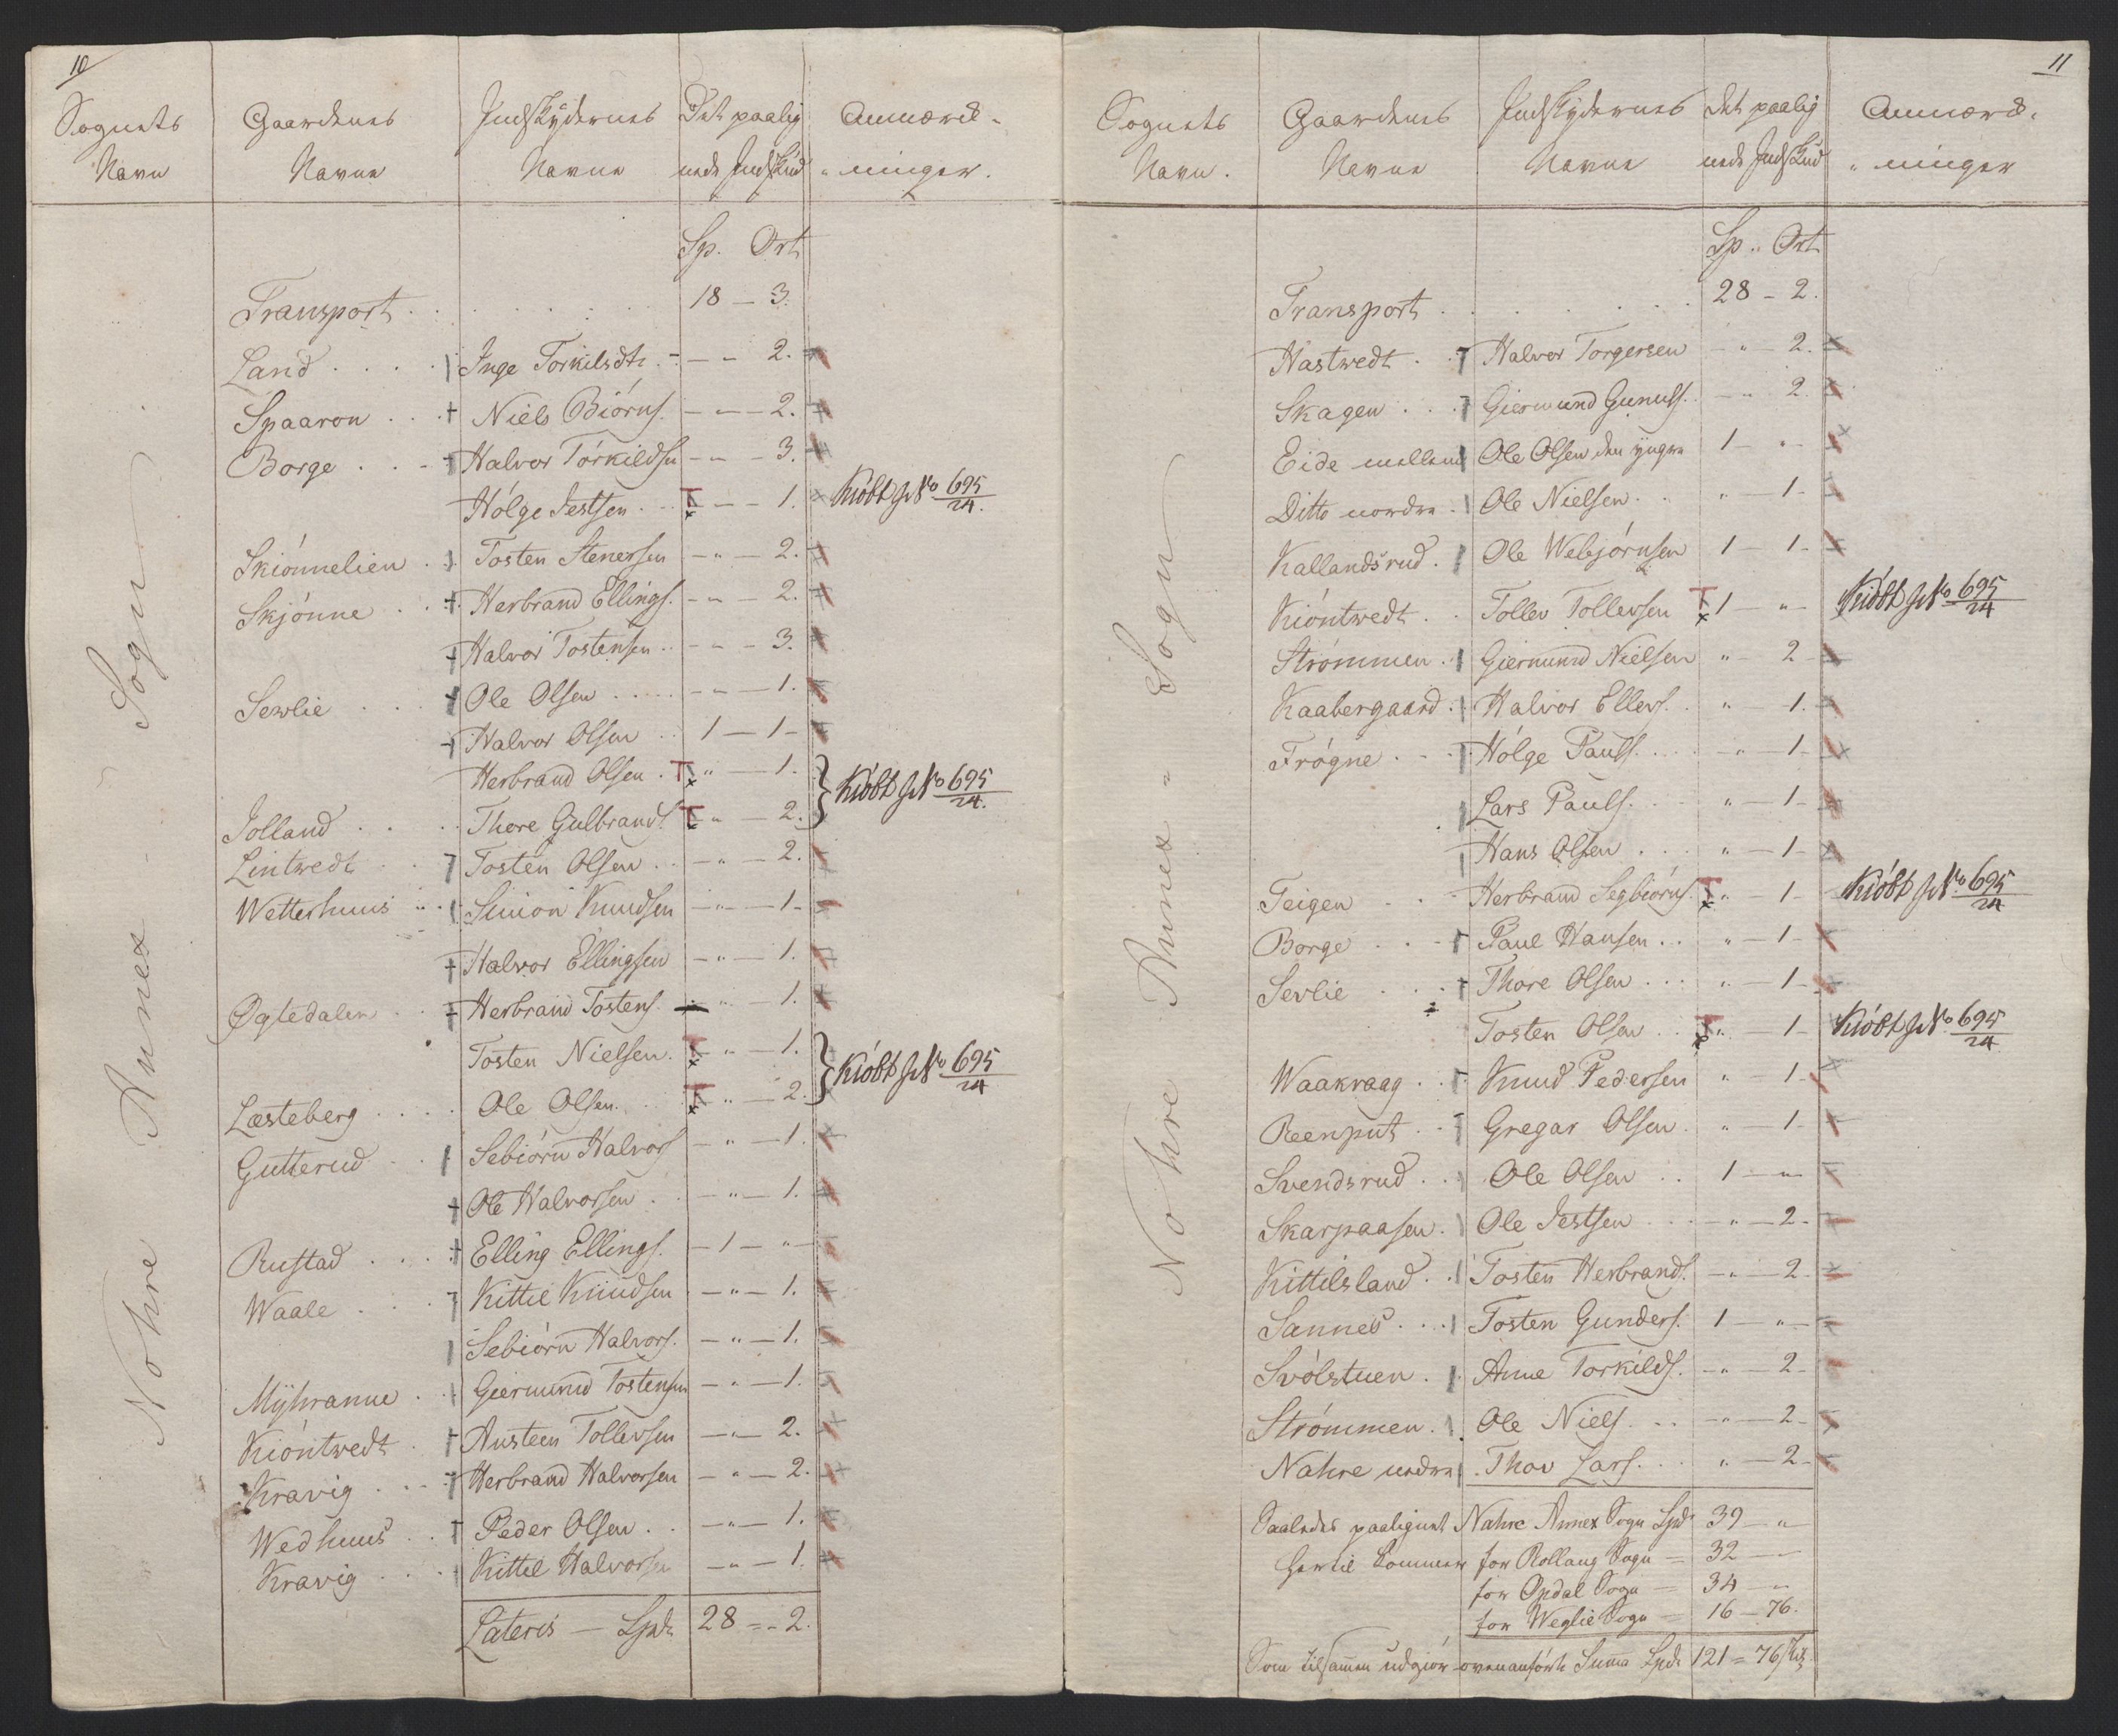 10
Sognets Navn | Gaardenes Navne | Indskydernes Navne | Det paalignede Indskud | Anmærkninger.
Nohre Annex Sogn
Sp. Ort
Transport . . . . . 18 — 3.
Land . . . . Inge Torkilsdtr. - — „ 2.
Spaaron . . . Niels Biörns. — „ — 2.
Borge . . . Halvor Törkildsen — „ — 3.
Hölge Jestsen . . T — „ — 1. Kiöbt J No 695/24.
Skiönnelien . . Tosten Stenersen — „ — 2.
Skjönne . . . Herbrand Ellings. — „ — 2.
Halvor Tostensen . . — „ — 3.
Sevlie . . . Ole Olsen . . . . — „ — 1.
Halvor Olsen . . 1 — 1 —
Herbrand Olsen . T „ — 1. } Kiöbt J No 695/24.
Jolland . . . . Thore Gulbrands. T „ — 2.
Lintwedt . . . Tosten Olsen . . — „ — 2.
Wetterhuus . . Simon Knudsen — „ — 1 —
Halvor Ellingsen — „ — 1.
Øgtedalen . . Herbrand Tostens. — „ — 1.
Tosten Nielsen. T — „ — 1. } Kiöbt J No 695/24
Læsteberg . . . . Ole Olsen. . T — „ — 2.
Gutterud . . Sebiörn Halvors — „ — 1.
Ole Halvorsen . . — „ — 1.
Rustad . . . . Elling Ellings. — 1 — „ —
Waale . . . Kittil Knudsen — „ — 1.
Sebiörn Halvors. — „ — 1.
Mÿhranne . . Giermund Tostensen — „ — 1.
Kiöntwedt . Austeen Tollevsen — „ — 2.
Kravig . . . Herbrand Halvorsen — „ — 2.
Wedhuus . . Peder Olsen . . — „ — 1.
Kravig . . . . Kittil Halvorsen — „ — 1.
Lateris — Spd. 28 = „ 2.
11
Sognets Navn. | Gaardenes Navne | Indskydernes Navne | Det paalignede Indskud | Anmærkninger
Nohre Annex „ Sogn
Sp. „ Ort
Transport . . . . . 28 — 2.
Hastwedt . . Halvor Torgersen — „ — 2.
Skagen . . . Giermund Gunuls. . — „ 2.
Eide mellem Ole Olsen den yngre 1 — „ —
Ditto nordre . Ole Nielsen . . „ — 1 —
Kallandsrud . Ole Webjörnsen 1 — 1 —
Kiöntwedt . . Tollev Tollevsen T 1 — „ — Kiöbt J No 695/24
Strömmen . Giermund Nielsen „ — 2 —
Kaabergaard . Halvor Ellevs. . „ — 1.
Frögne . . . Hölge Pauls. . . . — „ — 1 —
Lars Pauls. . . „ — 1 —
Hans Olsen . . . „ — 1 —
Teigen . . . Herbrand Segbiörns. T „ — 1 — Kiöbt J No 695/24
Borge . . . Paul Hansen . . „ — 1 —
Sevlie . . . . Thore Olsen . . . „ — 1 —
Tosten Olsen . . T „ — 1 — Kiöbt J No 695/24
Waakraag . . . Knud Pedersen „ — 1 —
Reenput . . Gregar Olsen . „ — 1 —
Svendsrud . . Ole Olsen . . 1 — „ —
Skarpaasen . Ole Jestsen . . . — „ — 2 —
Kittilsland . . Tosten Herbrands. — „ — 2 —
Sannes . . . Tosten Gunders. 1 — „ —
Svölstuen . Anne Torkilds. — „ — 2 —
Strömmen . Ole Niels. . . — „ — 2 —
Nahre nedre Thov Lars. . . „ — 2 —
Saaledes paalignet Nahre Annex Sogn Spd. 39 — „
Hertil kommer for Rollaug Sogn — 32 — „
for Opdal Sogn — 34 — „
for Weglie Sogn — 16 — 76.
Som tilsammen udgiör ovenanförte Suma Spd. 121 = 76 skl.